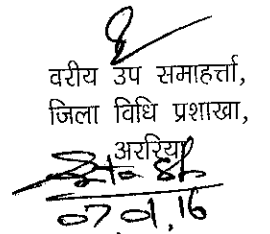 वरीय उप समाहर्त्ता,
जिला विधि प्रशाखा,
अररिया
07.01.16